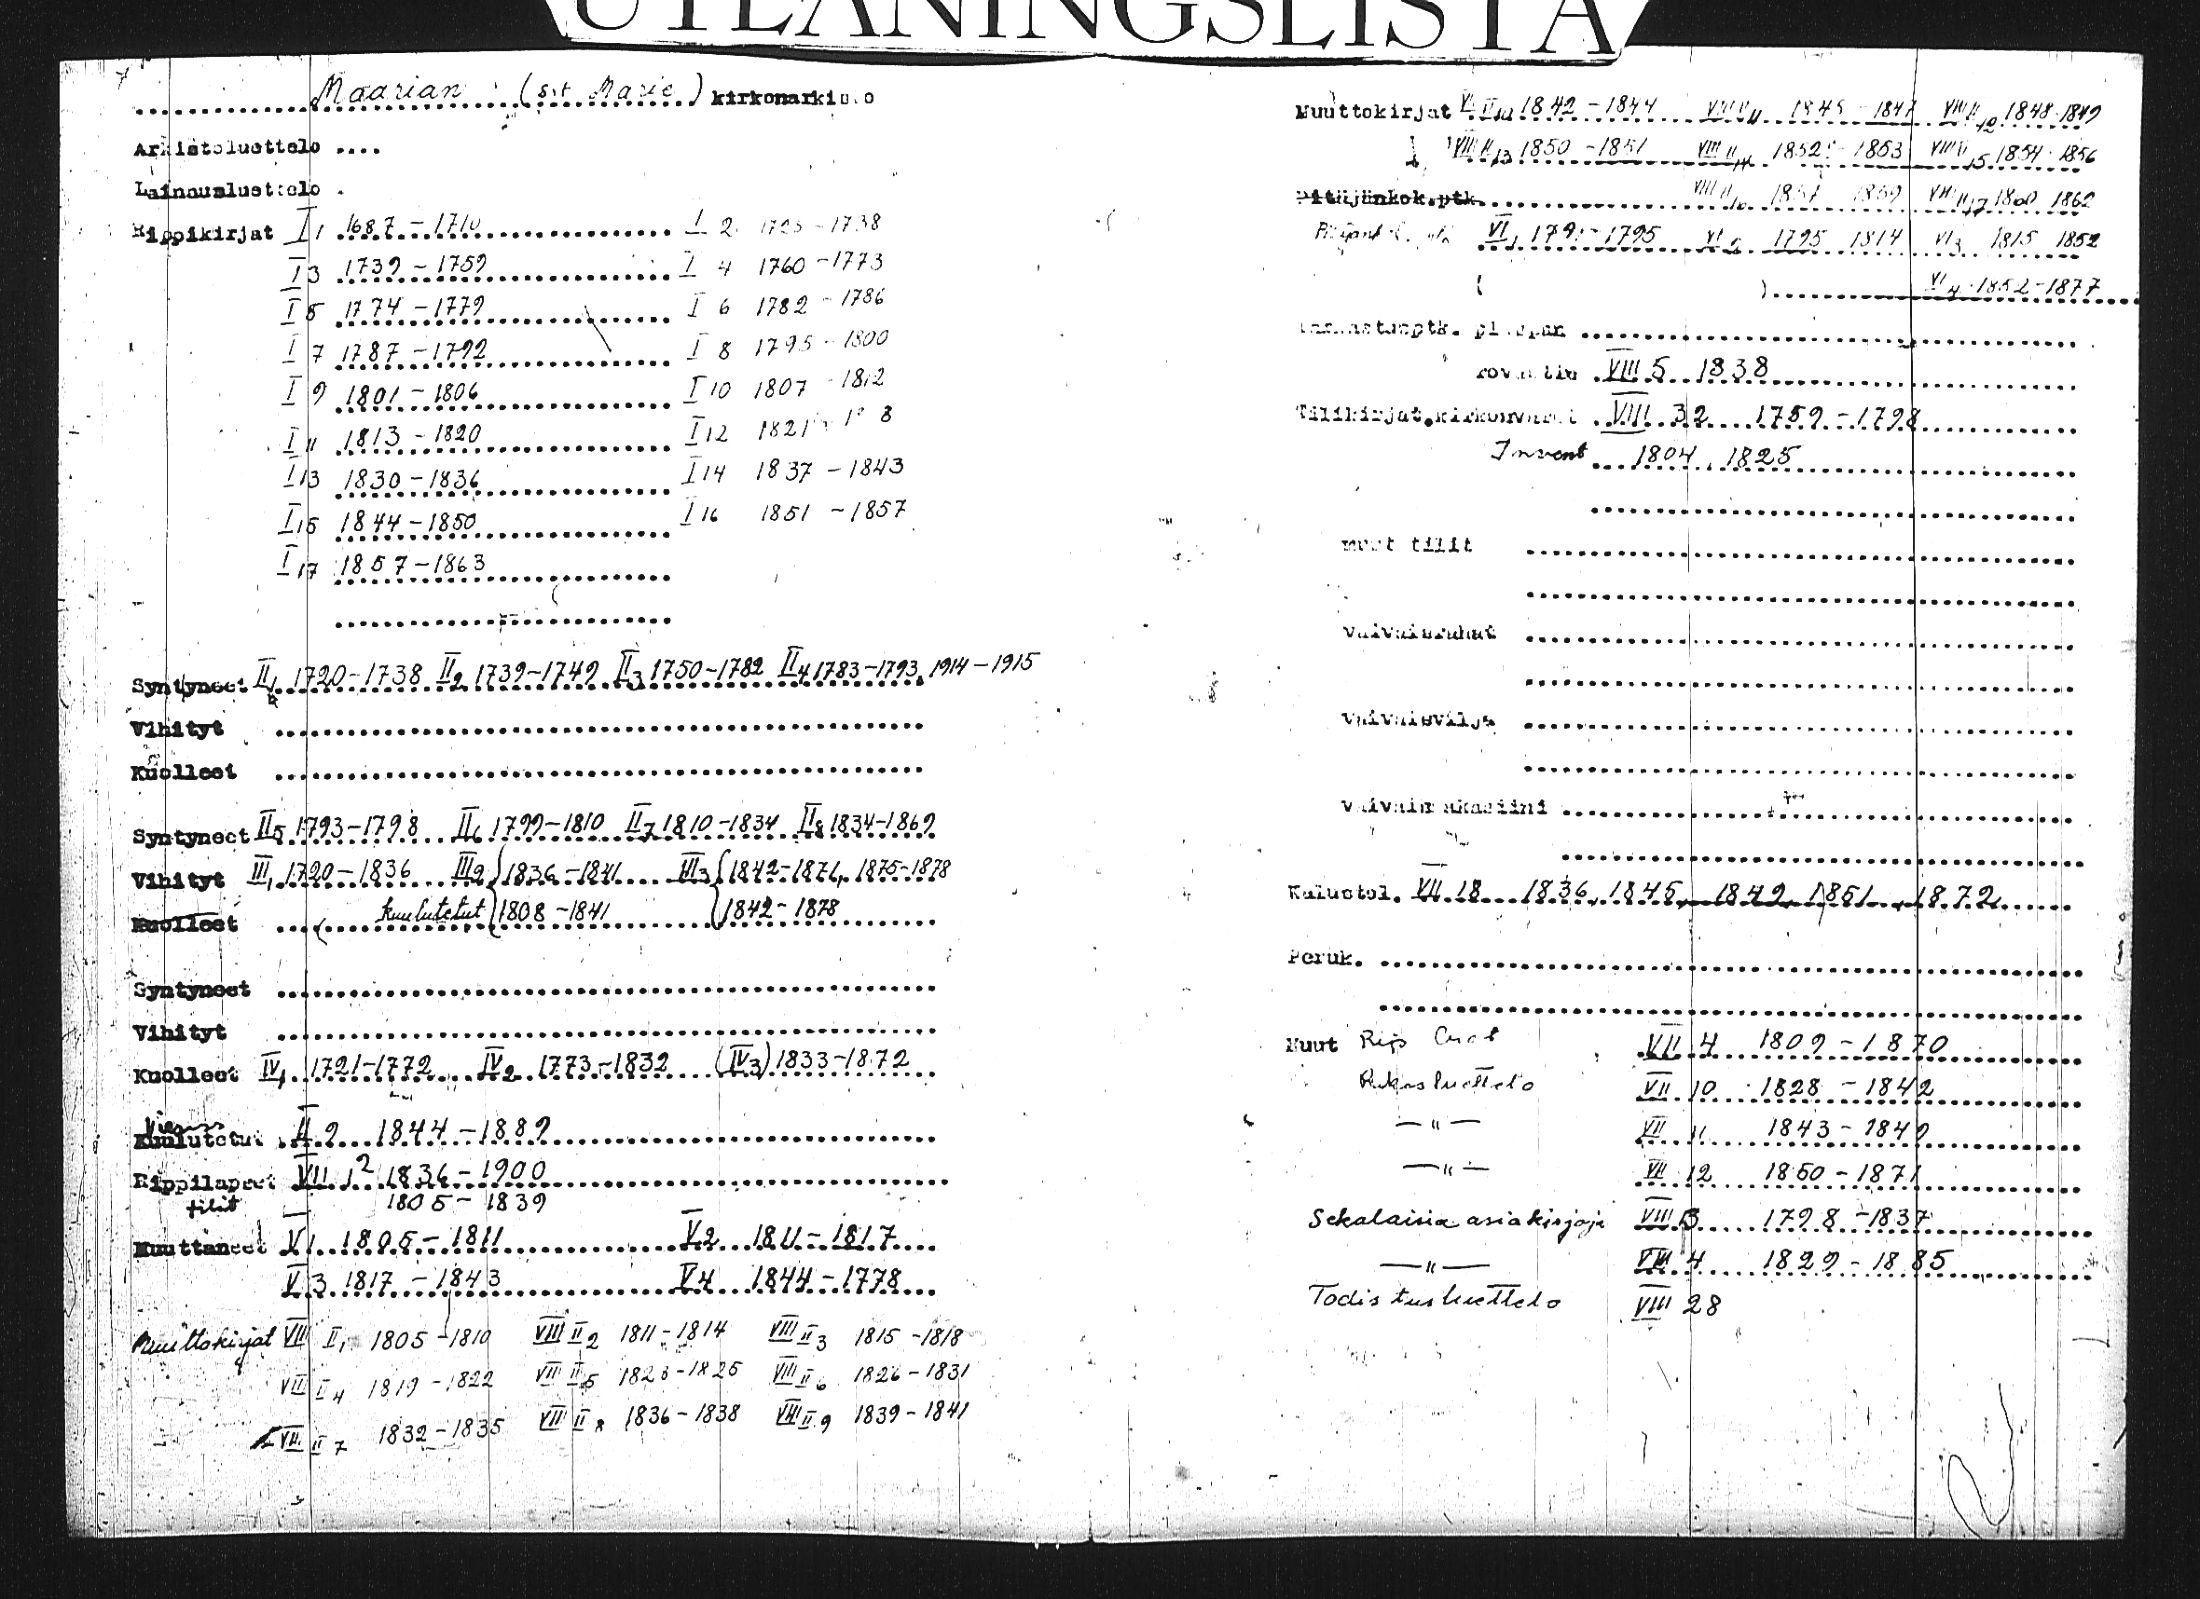 UTLÅNINGSLISTA
Maarian (s:t Marie) kirkonarkisto
Arkistoluettelo ....
Lainausluettelo .
Rippikirjat I 1 1687 - 1710 I 2 1725 - 1738
I 3 1739 - 1759 I 4 1760 - 1773
I 5 1774 - 1779 I 6 1782 - 1786
I 7 1787 - 1792 I 8 1795 - 1800
I 9 1801 - 1806 I 10 1807 - 1812
I 11 1813 - 1820 I 12 1821
I 13 1830 - 1836 I 14 1837 - 1843
I 15 1844 - 1850 I 16 1851 - 1857
I 17 1857 - 1863
Syntyneet II 1 1720 - 1738 II 2 1739 - 1749 II 3 1750 - 1782 II 4 1783 - 1793, 1914 - 1915
Vihityt
Kuolleet
Syntyneet II 5 1793 - 1798 II 6 1799 - 1810 II 7 1810 - 1834 II 8 1834 - 1869
Vihityt III 1 1720 - 1836 III 2 { 1836 - 1841 III 3 { 1842 - 1871, 1875 - 1878
Kuolleet ( kuulutetut { 1808 - 1841 { 1842 - 1878
Syntyneet
Vihityt
Kuolleet IV 1 1721 - 1772 IV 2 1773 - 1832 (IV 3) 1833 - 1872
Kuulutetut II 9 1844 - 1889
Rippilapset VII 1 2 1836 - 1900
tilit 1805 - 1839
Muuttaneet V 1 1805 - 1811 V 2 1811 - 1817
V 3 1817 - 1843 V 4 1844 - 1778
Muuttokirjat VIII II 1 1805 - 1810 VIII II 2 1811 - 1814 VIII II 3 1815 - 1818
VIII II 4 1819 - 1822 VIII II 5 1823 - 1825 VIII II 6 1826 - 1831
VIII II 7 1832 - 1835 VIII II 8 1836 - 1838 VIII II 9 1839 - 1841
Muuttokirjat VIII II 10 1842 - 1844 VIII II 11 1845 - 1847 VIII II 12 1848 - 1849
VIII II 13 1850 - 1851 VIII II 14 1852 - 1853 VIII II 15 1854 - 1856
Pitäjänkok.ptk. VIII II 16 1857 1859 VIII II 17 1860 1862
VI 1 1791 - 1795 VI 2 1795 1814 VI 3 1815 1852
( ) VI 4 1852 - 1877
Tarkastusptk. piispan
rovastin VIII 5 1838
Tilikirjat, kirkonvarat VIII 32 1759 - 1798
Invent 1804, 1825
muut tilit
vaivaisrahat
vaivaisvilja
vaivaismakasiini
Kalustol. VII 18 1836, 1845, 1849, 1851, 1872
Peruk.
Muut VII 4 1809 - 1870
Rukosluettelo VII 10 1828 - 1842
— " — VII 11 1843 - 1849
— " — VII 12 1850 - 1871
Sekalaisia asiakirjoja VIII 3 1798 - 1837
— " — VIII 4 1829 - 1885
Todistusluettelo VIII 28